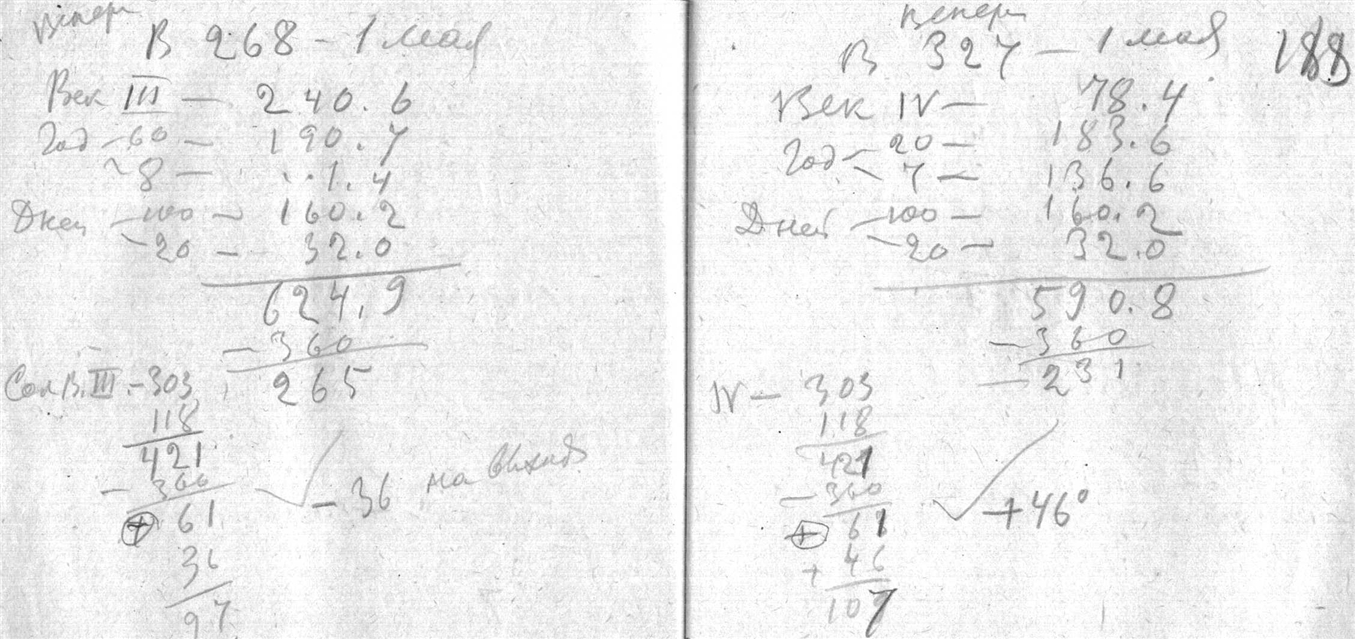 В 268 – 1 мая
Век III – 240.6
Год – 60 – 190.7
~ 8 – . . 1.4
Дней – 100 – 160.2
~ 20 – 32.0
624.9
– 360
265
Сол В. III. – 303
118
421
– 360
+ 61
36
97
– 36 на выход
В 327 – 1 мая
188
Век IV – 78.4
Год – 20 – 183.6
7 – 136.6
Дней – 100 – 160.2
~ 20 – 32.0
590.8
– 360
– 231
IV – 303
118
421
– 360
+ 61
+ 46
107
+46°